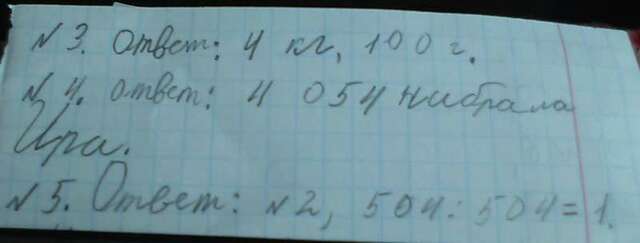 № 3. Ответ: 4 кг, 100 г.
№ 4. Ответ: 4 054 набрала
Ира.
№ 5. Ответ: № 2, 504 : 504 = 1.